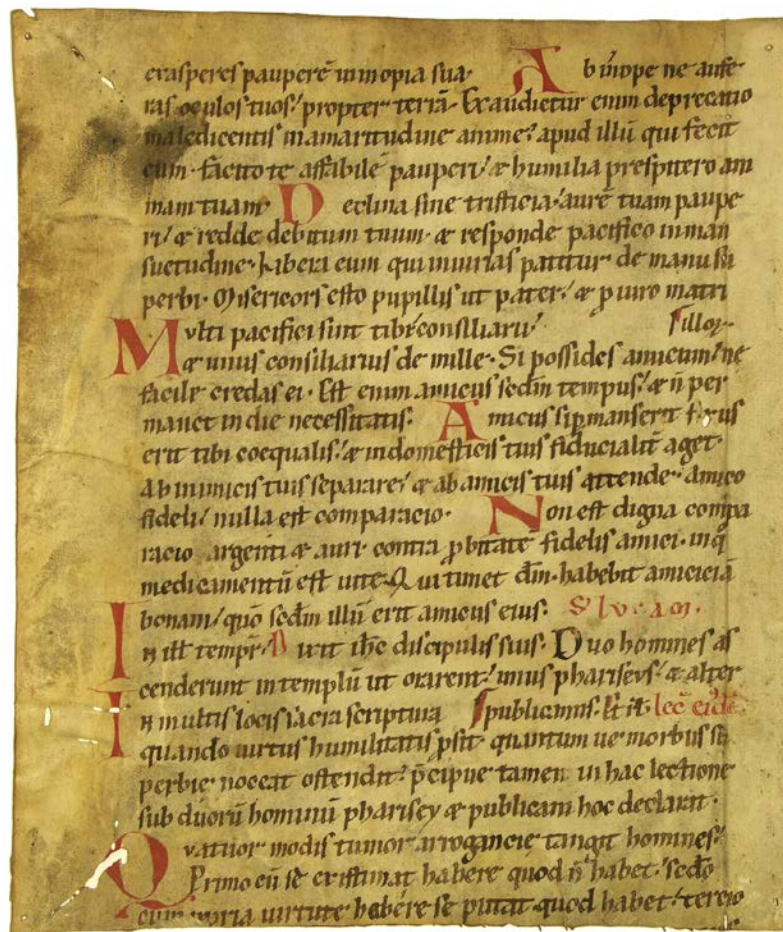 exasperes pauperē in inopia sua. Ab īnope ne aufe
ras oculos tuos; propter terrā. Exaudietur enim deprecatio
maledicentis in amaritudine anime; apud illū qui fecit
eum. facito te affabilē pauperi; & humilia prespitero ani
mam tuam. Declina sine tristicia; aurē tuam paupe
ri; & redde debitum tuum. & responde pacifico in man
suetudine. Libera eum qui iniurias patitur de manu su
perbi. Misericors esto pupillis ut pater; & p uiro matri
Multi pacifici sint tibi; consiliarii; illoꝝ.
& unus consiliarius de mille. Si possides amicum; ne
facile credas ei. Est enim amicus scdm tempus; & n̄ per
manet in die necessitatis. Amicus si pmanserit fixus
erit tibi coequalis; & in domesticis tuis fiducialit̄ aget.
Ab inimicis tuis separare; & ab amicis tuis attende. amico
fideli; nulla est comparacio. Non est digna compa
racio argenti & auri contra pbitatē fidelis amici.
medicamentū est uite. Qui timet dm̄. habebit amiciciā
bonam; quō scdm illū erit amicus eius. S' lucam.
In ill tempr̄. Dixit ihc discipulis suis. Duo homines as
cenderunt in templū ut orarent; unus phariseus; & alter
In multis locis sacra scriptura publicanus. Et rł. lec̄ eiđē
quando uirtus humilitatis psit. quantum ue morbus su
perbie noceat ostendit; p̄cipue tamen in hac lectione
sub duorū hominū pharisey & publicani hoc declarat.
Quatuor modis tumor arrogancie tangit homines;
Primo cū se existimat habere quod n̄ habet. scđo
cum uaria uirtute habere se putat quod habet; tercio